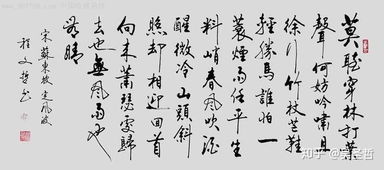 莫聽穿林打葉
聲何妨吟嘯且
徐行竹杖芒鞋
輕勝馬誰怕一
蓑煙雨任平生
料峭春風吹酒
醒微冷山頭斜
照却相迎回首
向来蕭瑟處歸
去也無風雨也
晴
宋蘇東坡定風波
程文哲書
知乎